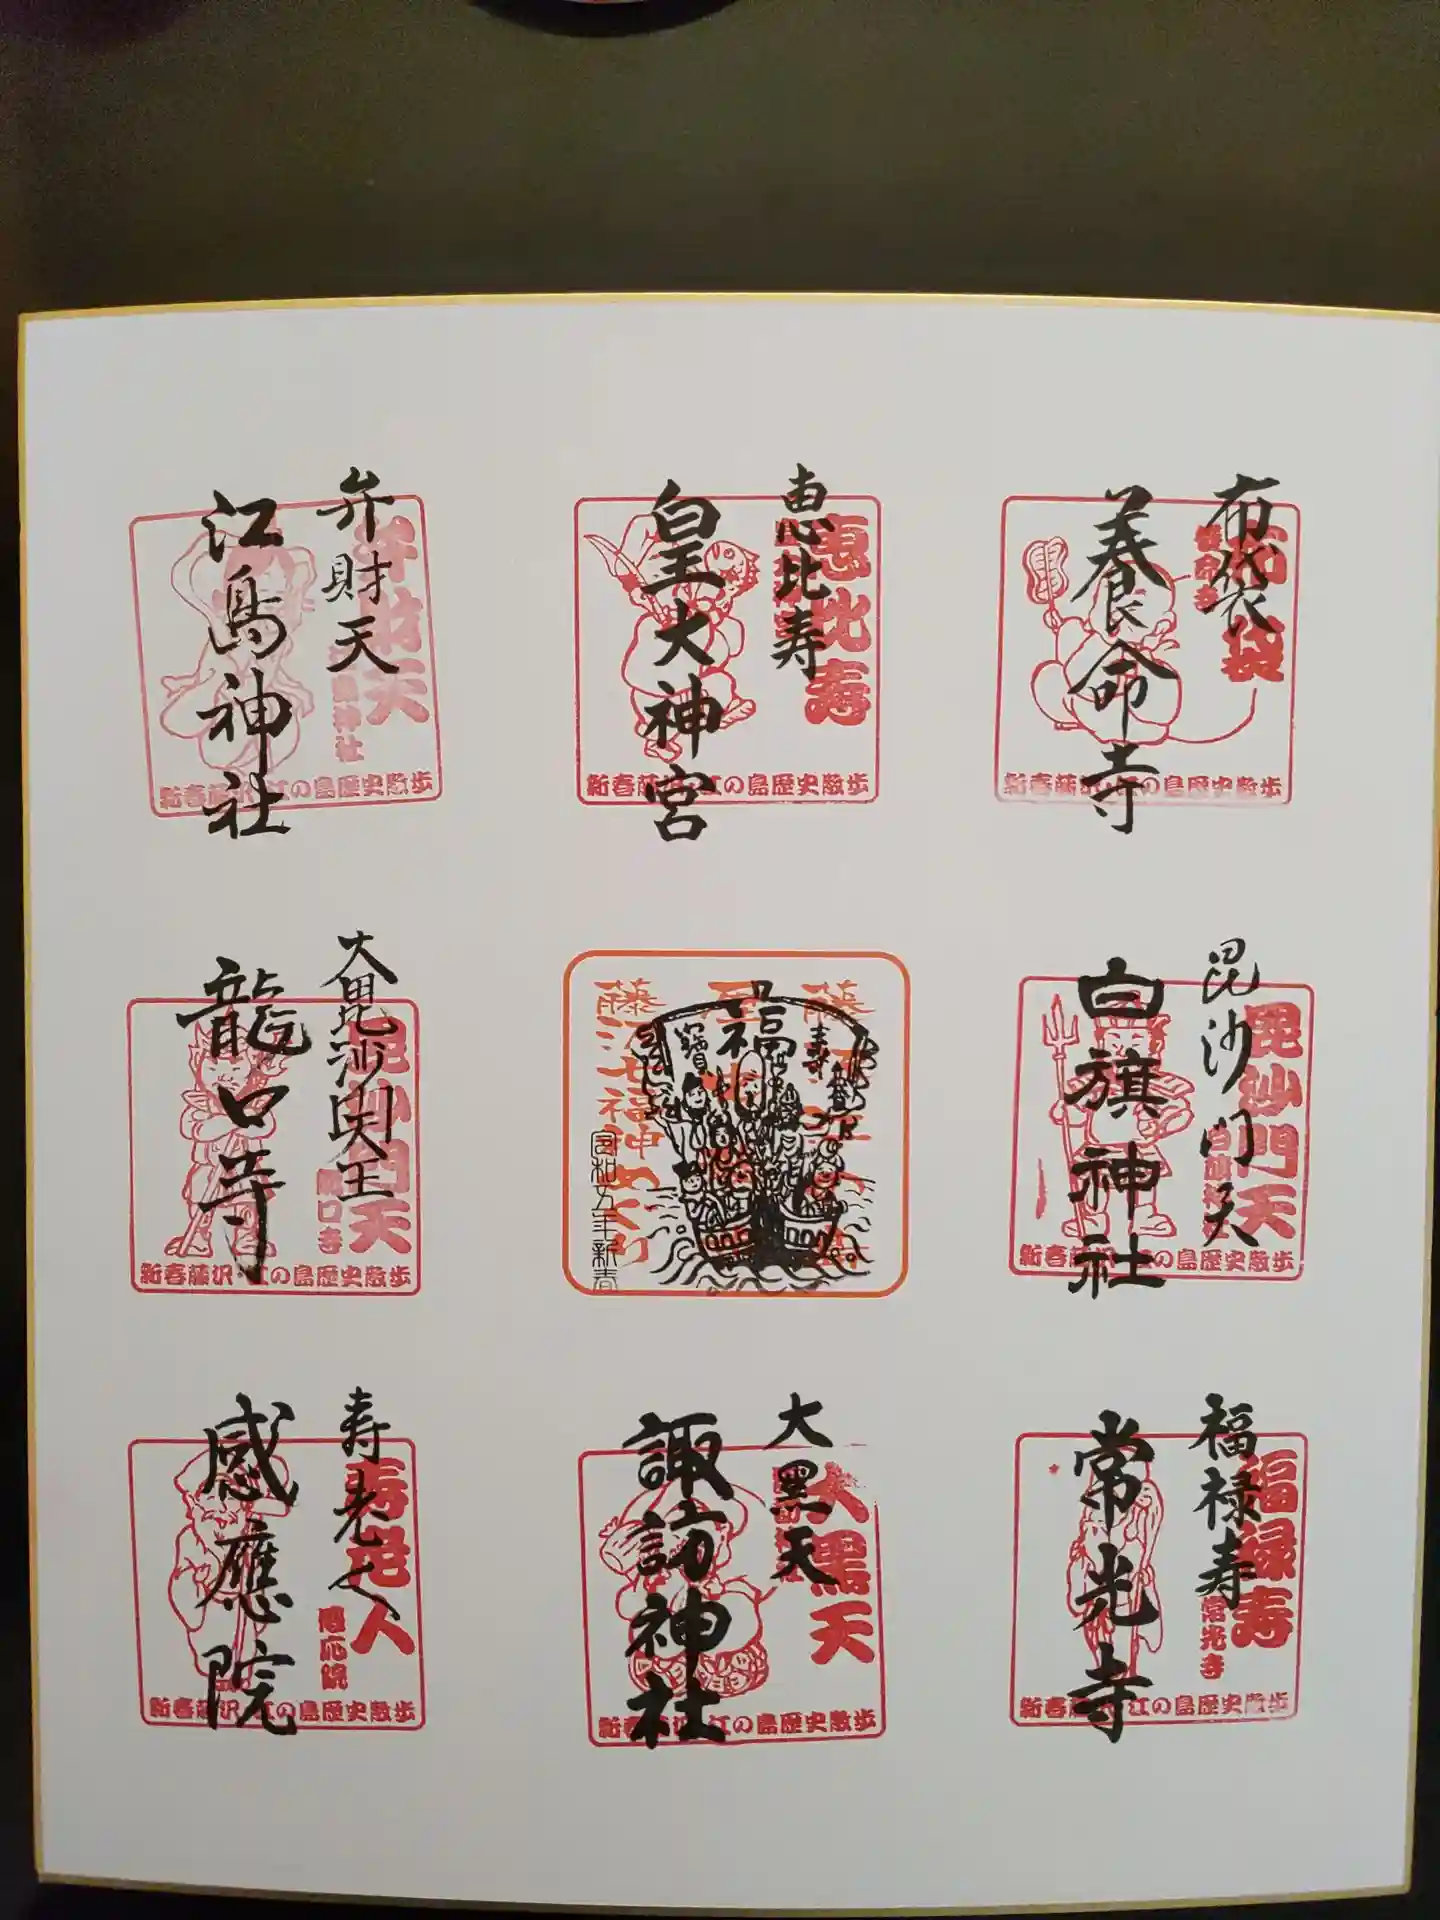 布袋
養命寺
布袋
養命寺
新春藤沢・江の島歴史散歩
恵比寿
皇大神宮
恵比寿
新春藤沢・江の島歴史散歩
弁財天
江島神社
弁財天
江島神社
新春藤沢・江の島歴史散歩
毘沙門天
白旗神社
毘沙門天
白旗神社
新春藤沢・江の島歴史散歩
福
寿
寳
藤沢七福神めぐり
五年新春
大毘沙門天王
龍口寺
毘沙門天
龍口寺
新春藤沢・江の島歴史散歩
福禄寿
常光寺
福禄寿
常光寺
新春藤沢・江の島歴史散歩
大黒天
諏訪神社
大黒天
新春藤沢・江の島歴史散歩
寿老人
感應院
寿老人
感応院
新春藤沢・江の島歴史散歩